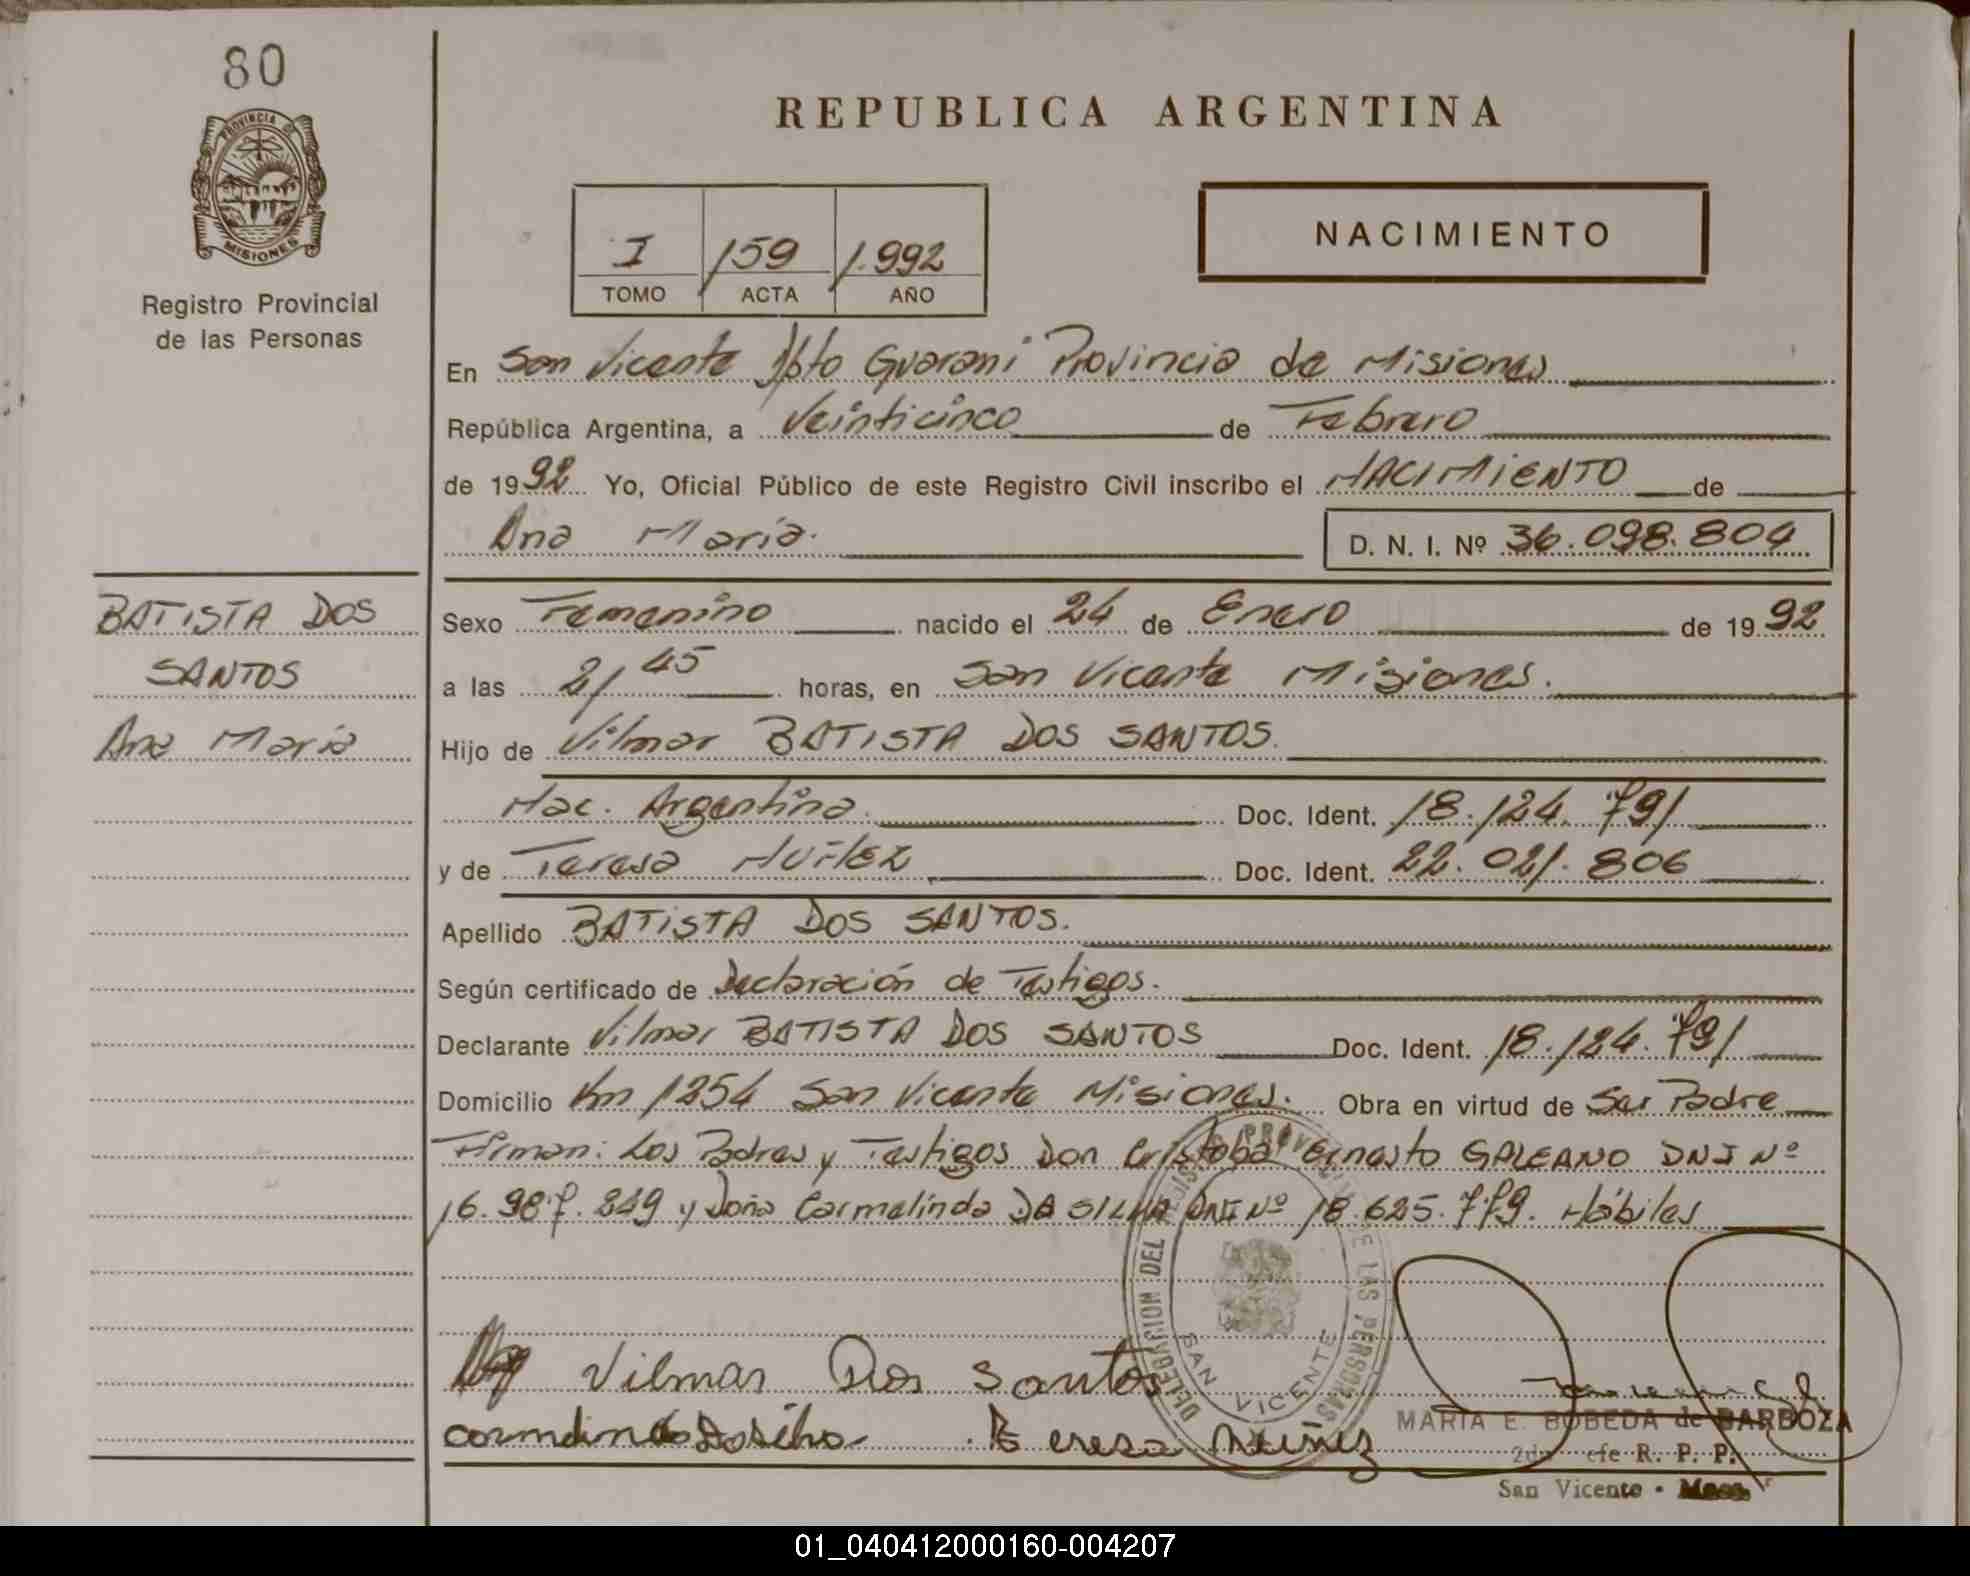 80
PROVINCIA DE
MISIONES
Registro Provincial
de las Personas
REPUBLICA ARGENTINA
I 159 1.992
TOMO ACTA AÑO
NACIMIENTO
En San Vicente Dpto Guaraní Provincia de Misiones
República Argentina, a Veinticinco de Febrero
de 1992 Yo, Oficial Público de este Registro Civil inscribo el NACIMIENTO de
Ana María. D. N. I. Nº 36.098.804
BATISTA DOS
SANTOS
Ana María
Sexo Femenino nacido el 24 de Enero de 1992
a las 21 45 horas, en San Vicente Misiones.
Hijo de Vilmar BATISTA DOS SANTOS.
Nac. Argentina. Doc. Ident. 18.124.791
y de Teresa NUÑEZ Doc. Ident. 22.021.806
Apellido BATISTA DOS SANTOS.
Según certificado de Declaración de Testigos.
Declarante Vilmar BATISTA DOS SANTOS Doc. Ident. 18.124.791
Domicilio Km 1254 San Vicente Misiones. Obra en virtud de Ser Padre
Firman: Los Padres y Testigos Don Cristobal Ernesto GALEANO DNI Nº
16.987.249 y Doña Carmelinda DA SILVA DNI Nº 18.625.779. Hábiles
DELEGACION DEL REGISTRO PROVINCIAL DE LAS PERSONAS
SAN VICENTE
Vilmar Dos Santos
Teresa Nuñez
MARIA E. BOBEDA de BARBOZA
2do Jefe R. P. P.
San Vicente - Mnes.
01_040412000160-004207